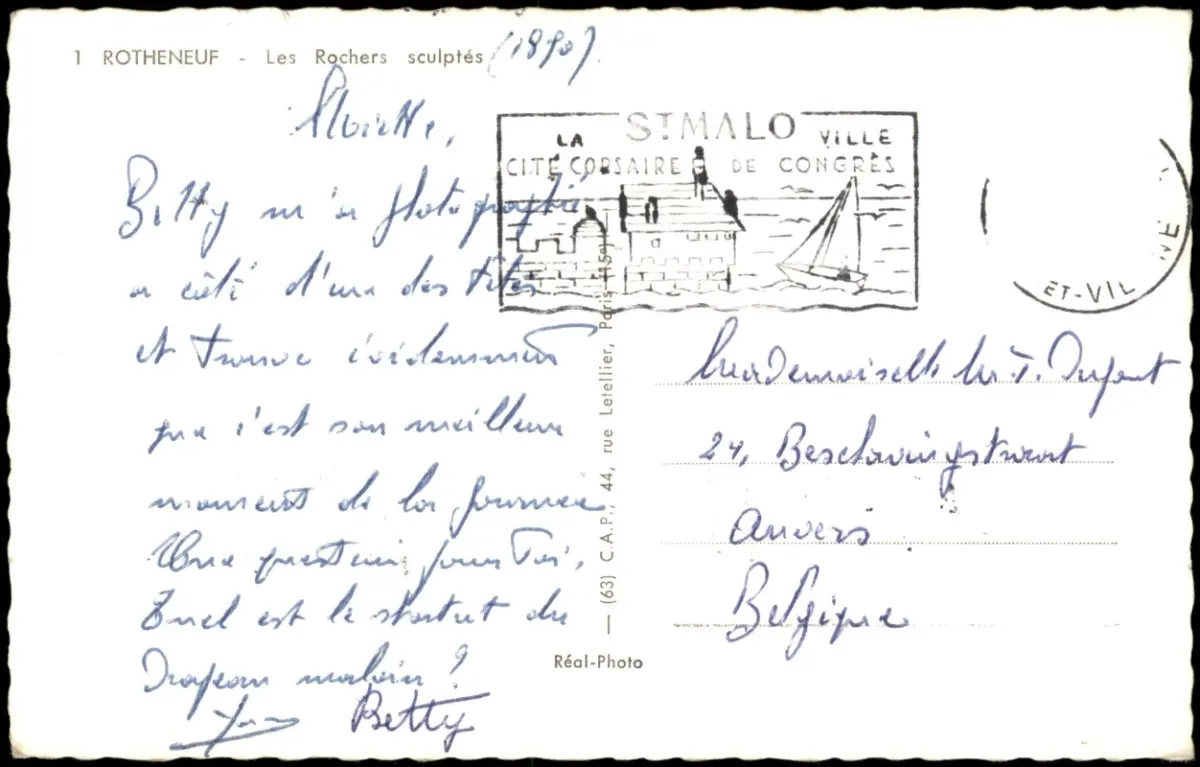 1 ROTHENEUF - Les Rochers sculptés (1890)
Betty m'a photographié
a côté d'une des têtes
et trouve évidemment
que c'est son meilleur
moment de la journée
Une question pour Toi,
Quel est le statut du
Drapeau malouin?
Betty
ST MALO
LA CITÉ CORSAIRE
VILLE DE CONGRÈS
ET-VIL
NE
(63) C.A.P., 44, rue Letellier, Paris (15e)
Réal-Photo
Mademoiselle
24,
Anvers
Belgique